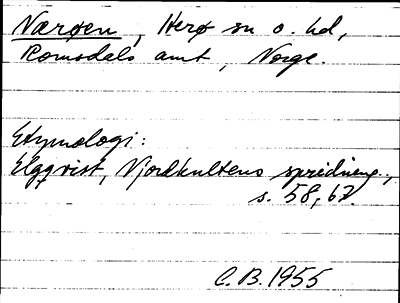 Nærøen, Herø sn o. hd,
Romsdals amt, Norge.
Etymologi:
Elgqvist, Njordkultens spridning.,
s. 58, 62.
C.B. 1955